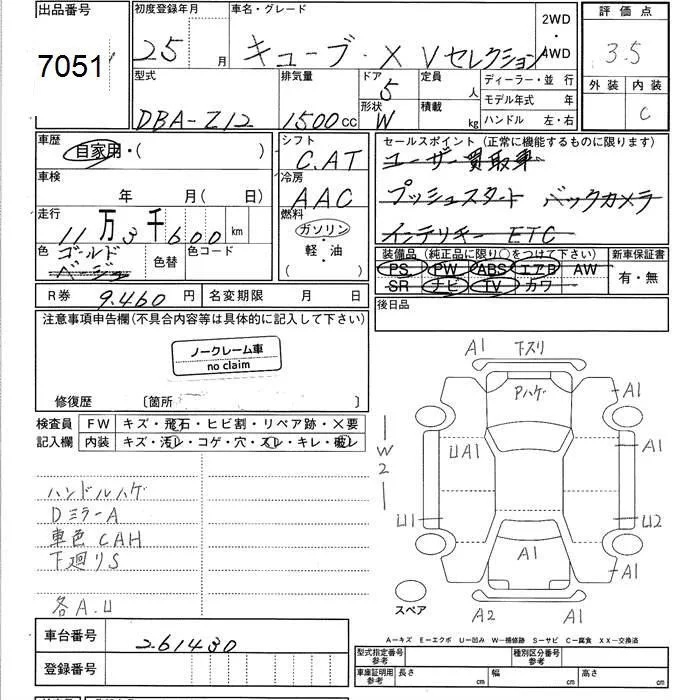 出品番号 初度登録年月 車名・グレード 2WD・4WD 評価点
7051 25 月 キューブ・X Vセレクション 3.5
型式 排気量 ドア 5 定員 人 ディーラー・並 行 外装 内装
モデル年式 年
DBA-Z12 1500cc 形状 W 積載 kg ハンドル 左・右 C
車歴 自家用・( ) シフト C.AT セールスポイント (正常に機能するものに限ります)
ユーザー買取車
車検 年 月( 日) 冷房 AAC プッシュスタート バックカメラ
走行 11万3千600km 燃料 ガソリン・軽・油 インテリキー ETC
色 ゴールド ベージュ 色替 色コード 装備品(純正品に限り○をつけて下さい) 新車保証書
PS PW ABS エアB AW 有・無
SR ナビ TV カワ
R券 9.460円 名変期限 月 日 後日品
注意事項申告欄(不具合内容等は具体的に記入して下さい)
ノークレーム車
no claim
修復歴 〔箇所 〕
検査員 FW キズ・飛石・ヒビ割・リペア跡・×要
記入欄 内装 キズ・汚レ・コゲ・穴・スレ・キレ・破レ
ハンドルハゲ
DミラーA
車色CAH
下廻りS
各A.U
A1 下スリ
Pハゲ A1
W2 UA1 A1
U1 U2
A1 A1
スペア A2 A1
A－キズ E－エクボ U－凹み W－補修跡 S－サビ C－腐食 XX－交換済
車台番号 261430
登録番号
型式指定番号 参考 種別区分番号 参考
車庫証明用 参考 長さ cm 幅 cm 高さ cm